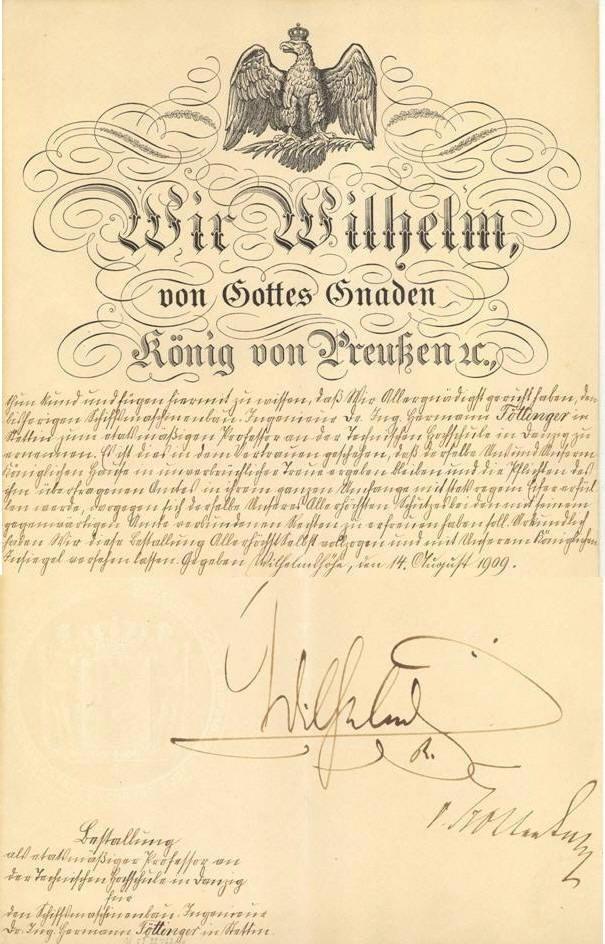 Wir Wilhelm,
von Gottes Gnaden
König von Preußen ꝛc.,
thun kund und fügen hiermit zu wissen, daß Wir Allergnädigst geruht haben, den
bisherigen Schiffsmaschinenbau-Ingenieur Dr. Ing. Hermann Föttinger in
Stettin zum etatsmäßigen Professor an der Technischen Hochschule in Danzig zu
ernennen. Es ist dies in dem Vertrauen geschehen, daß derselbe Uns und Unserm
Königlichen Hause in unverbrüchlicher Treue ergeben bleiben und die Pflichten des
ihm übertragenen Amtes in ihrem ganzen Umfange mit stets regem Eifer erfül-
len werde, wogegen sich derselbe Unseres Allerhöchsten Schutzes bei den mit seinem
gegenwärtigen Amte verbundenen Rechten zu erfreuen haben soll. Urkundlich
haben Wir diese Bestallung Allerhöchstselbst vollzogen und mit Unserem Königlichen
Insiegel versehen lassen. Gegeben Wilhelmshöhe, den 14. August 1909.
Wilhelm
R.
Bestallung
als etatsmäßiger Professor an
der Technischen Hochschule in Danzig
für
den Schiffsmaschinenbau-Ingenieur
Dr. Ing. Hermann Föttinger in Stettin.